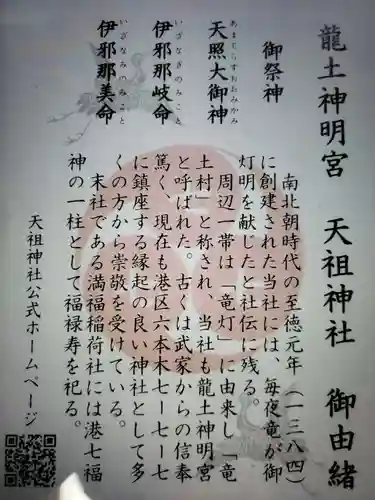 龍土神明宮 天祖神社 御由緒
御祭神
天照大御神
あまてらすおおみかみ
伊邪那岐命
いざなぎのみこと
伊邪那美命
いざなみのみこと
南北朝時代の至徳元年（一三八四）
に創建された当社には、毎夜竜が御
灯明を献じたと社伝に残る。
周辺一帯は「竜灯」に由来し「竜
土村」と称され、当社も龍土神明宮
と呼ばれた。古くは武家からの信奉
篤く、現在も港区六本木七ー七ー七
に鎮座する縁起の良い神社として多
くの方から崇敬を受けている。
末社である満福稲荷社には港七福
神の一柱として福禄寿を祀る。
天祖神社公式ホームページ